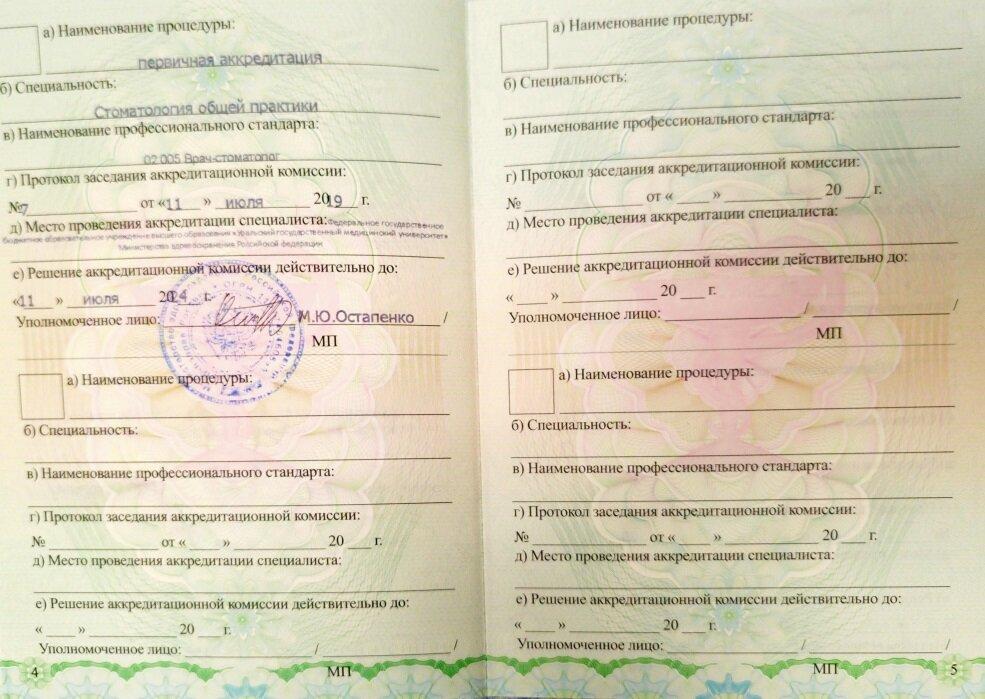 а) Наименование процедуры:
первичная аккредитация
б) Специальность:
Стоматология общей практики
в) Наименование профессионального стандарта:
02.005 Врач-стоматолог
г) Протокол заседания аккредитационной комиссии:
№7 от «11» июля 2019 г.
д) Место проведения аккредитации специалиста: Федеральное государственное
бюджетное образовательное учреждение высшего образования «Уральский государственный медицинский университет»
Министерства здравоохранения Российской федерации
е) Решение аккредитационной комиссии действительно до:
«11» июля 2024 г.
Уполномоченное лицо: М.Ю.Остапенко /
МП
а) Наименование процедуры:
б) Специальность:
в) Наименование профессионального стандарта:
г) Протокол заседания аккредитационной комиссии:
№ ____ от « ____ » ____ 20 ___ г.
д) Место проведения аккредитации специалиста:
е) Решение аккредитационной комиссии действительно до:
« ____ » ____ 20 ___ г.
Уполномоченное лицо: ____ / ____ /
4 МП
а) Наименование процедуры:
б) Специальность:
в) Наименование профессионального стандарта:
г) Протокол заседания аккредитационной комиссии:
№ ____ от « ____ » ____ 20 ___ г.
д) Место проведения аккредитации специалиста:
е) Решение аккредитационной комиссии действительно до:
« ____ » ____ 20 ___ г.
Уполномоченное лицо: ____ / ____ /
МП
а) Наименование процедуры:
б) Специальность:
в) Наименование профессионального стандарта:
г) Протокол заседания аккредитационной комиссии:
№ ____ от « ____ » ____ 20 ___ г.
д) Место проведения аккредитации специалиста:
е) Решение аккредитационной комиссии действительно до:
« ____ » ____ 20 ___ г.
Уполномоченное лицо: ____ / ____ /
МП 5